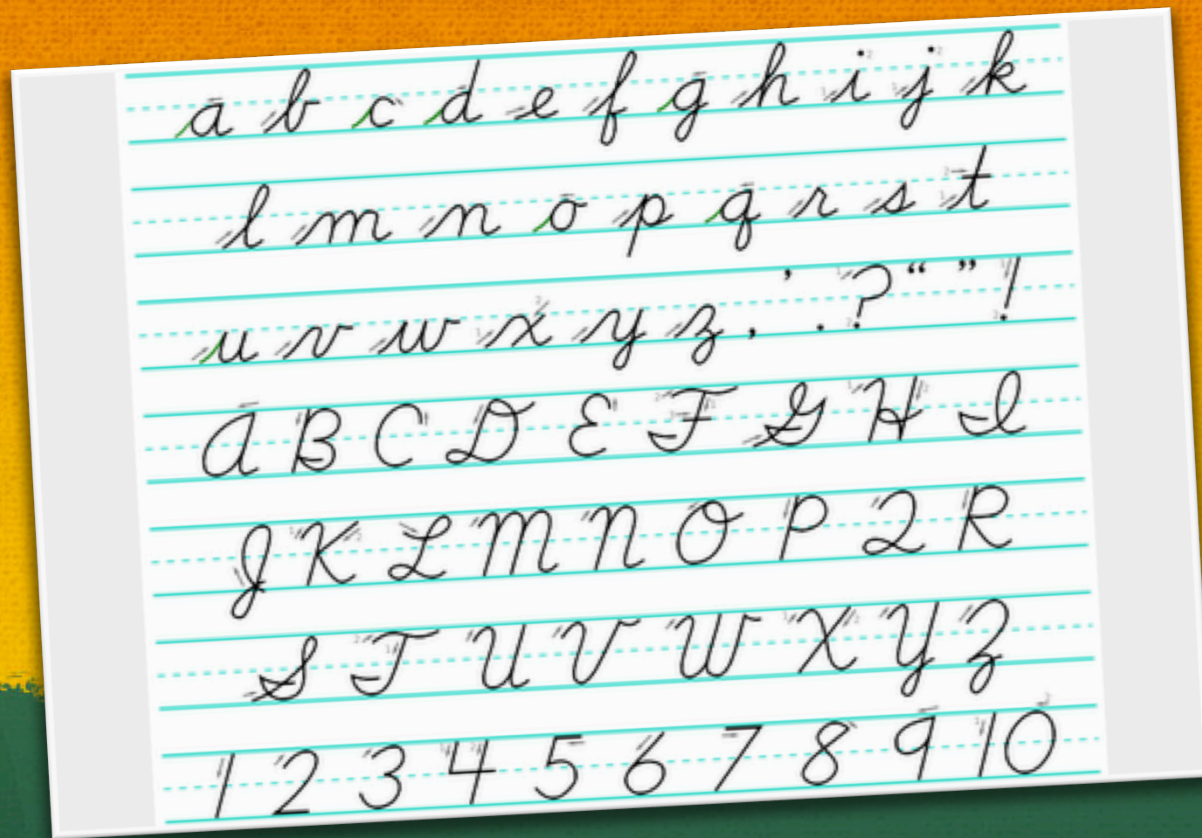 a b c d e f g h i j k
l m n o p q r s t
u v w x y z , . ' ? “ ” !
A B C D E F G H I
J K L M N O P Q R
S T U V W X Y Z
1 2 3 4 5 6 7 8 9 10